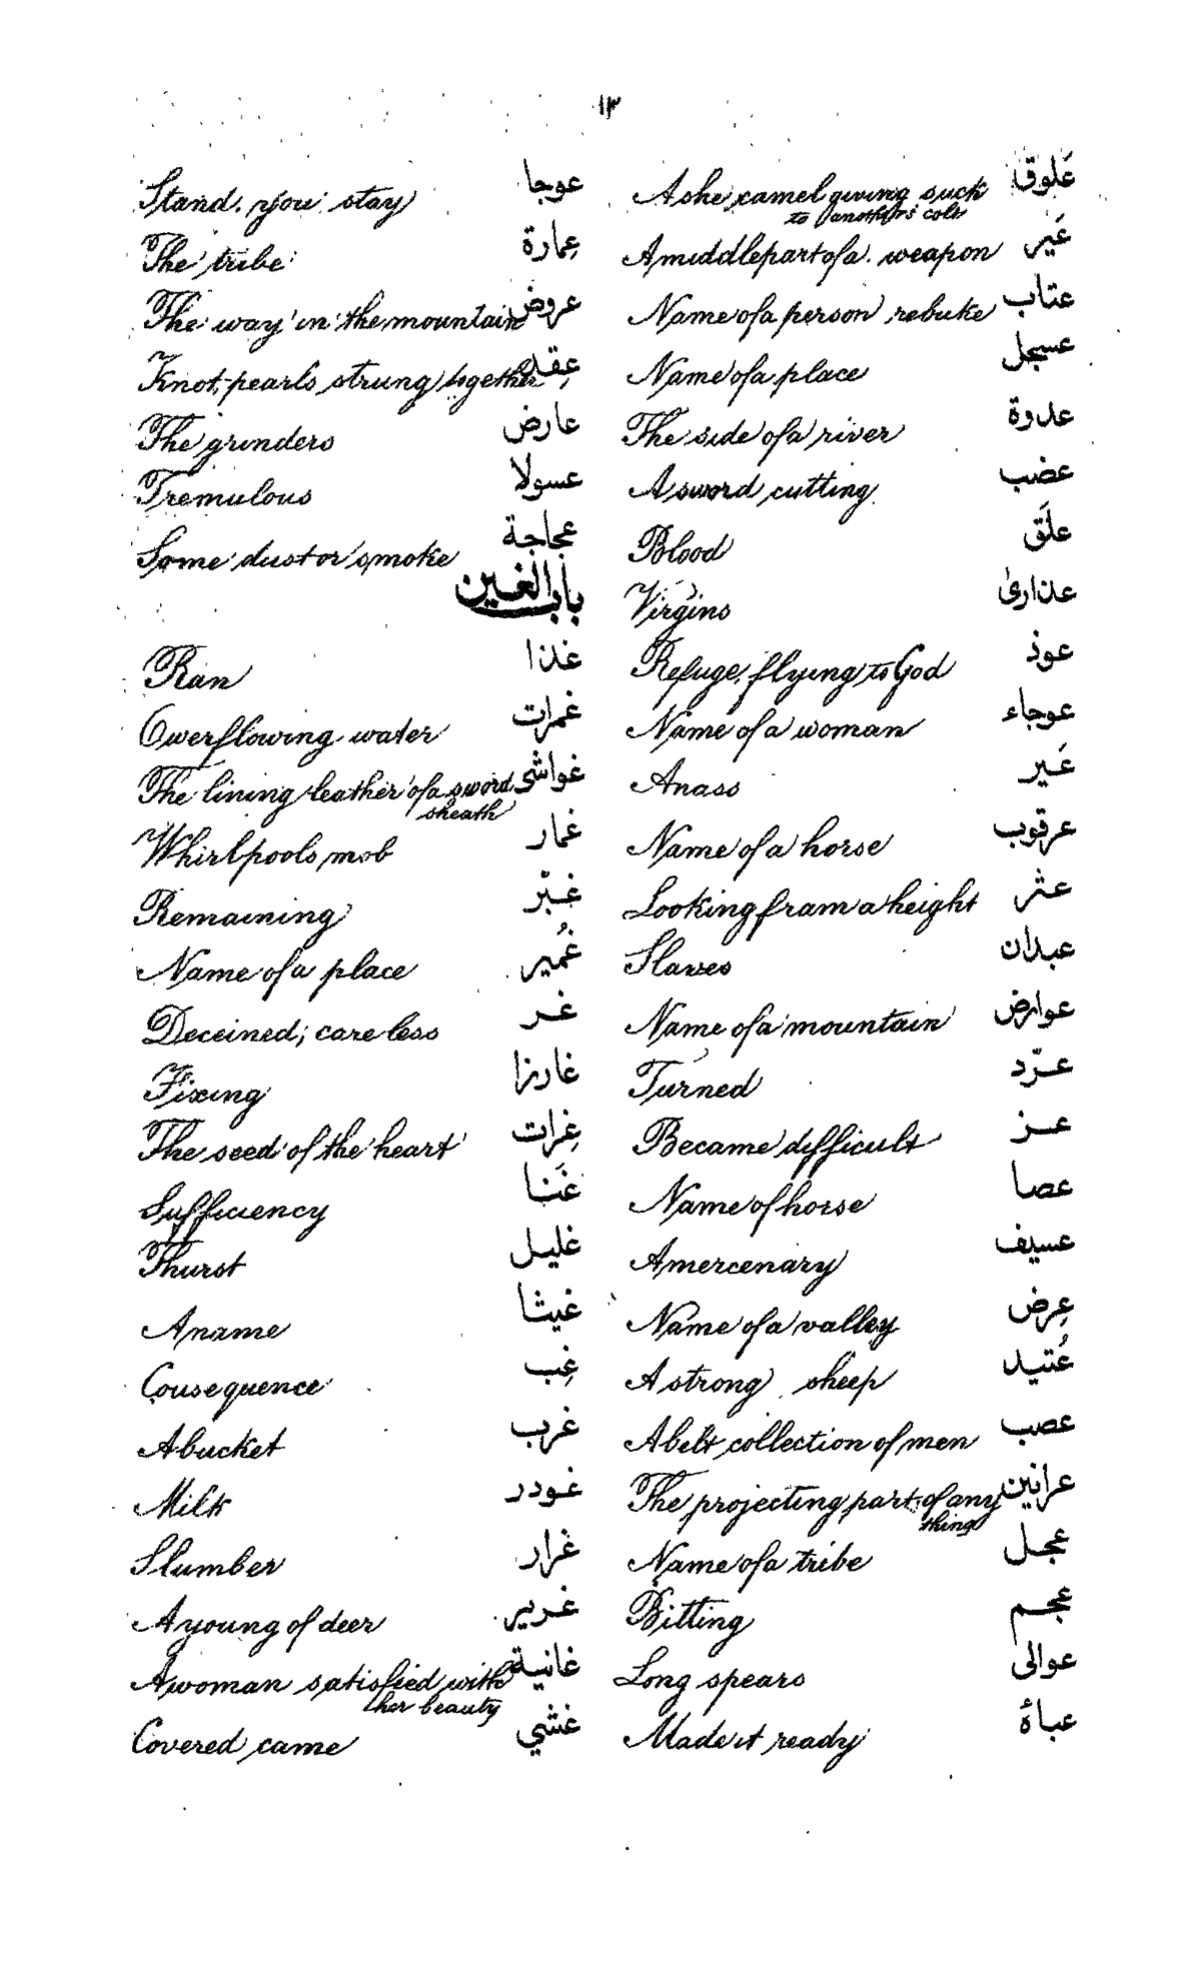 ١٣
عَلوق A she camel giving suck
to another's colt
عَير A middle part of a weapon
عتاب Name of a person rebuke
عسجل Name of a place
عدوة The side of a river
عضب A sword cutting
علَق Blood
عذارىٰ Virgins
عوذ Refuge, flying to God
عوجاء Name of a woman
عَير An ass
عرقوب Name of a horse
عثر Looking fram a height
عبدان Slaves
عوارض Name of a mountain
عرّد Turned
عز Became difficult
عصا Name of horse
عسيف A mercenary
عِرض Name of a valley
عُتيد A strong sheep
عصب A belt collection of men
عرانين The projecting part of any
thing
عجل Name of a tribe
عجم Bitting
عوالى Long spears
عبأة Made it ready
عوجا Stand. you stay
عِمارة The tribe
عروض The way in the mountain
عِقد Knot, pearls strung together
عارض The grinders
عسولا Tremulous
عجاجة Some dust or smoke
باب الغين
غذا Ran
غمرات Owerflowing water
غواشى The lining leather of a sword
sheath
غمار Whirlpools, mob
غبّر Remaining
غُمير Name of a place
غر Deceined; careless
غارزا Fixing
غِرات The seed of the heart
غَنا Sufficiency
غليل Thurst
غيثا A name
غِب Cousequence
غرب A bucket
غودر Milk
غرار Slumber
غرير A young of deer
غانية A woman satisfied with
her beauty
غشي Covered, came